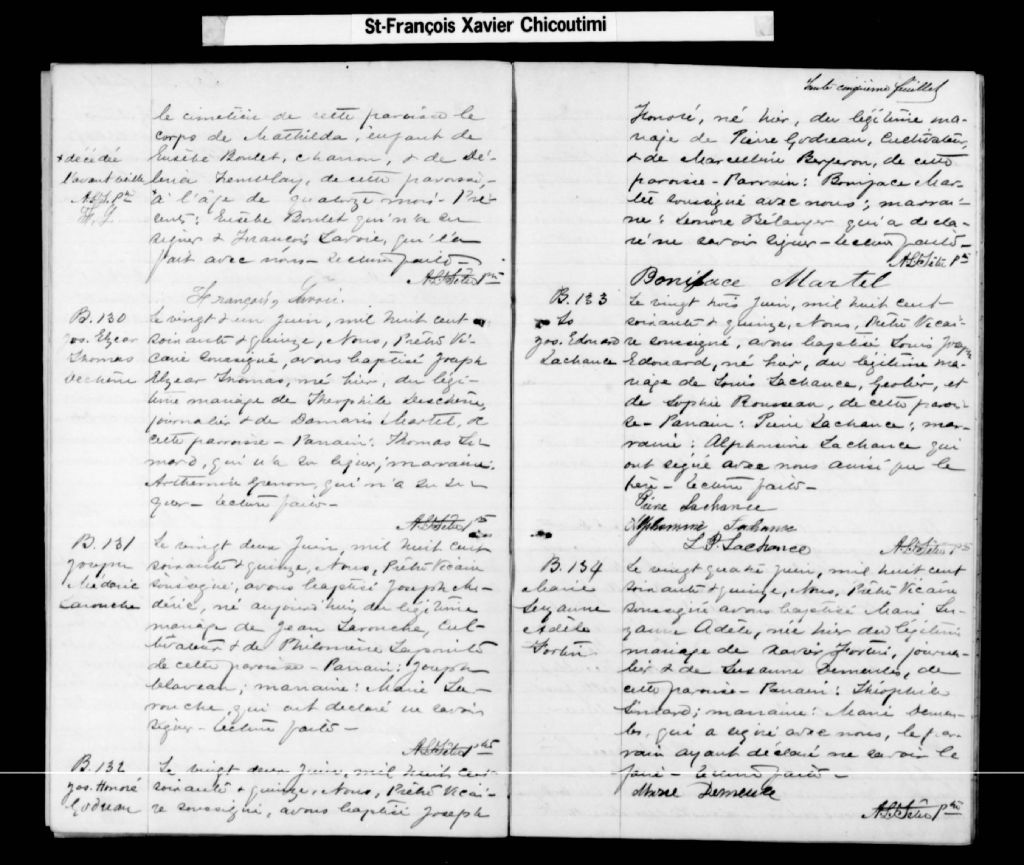 St-François Xavier Chicoutimi
le cimetière de cette paroisse le
corps de Mathilda, enfant de
Eusèbe Boulet, charron, & de Dé-
lima Tremblay, de cette paroisse,
à l'âge de quatorze mois - Pré-
sents: Eusèbe Boulet qui n'a su
signer & François Lavoie, qui l'a
fait avec nous - Lecture faite -
+ décédée
l'avant veille
François Lavoie
B. 130
Jos. Elzear
Thomas
Dechêne
Le vingt & un Juin, mil huit cent
soixante & quinze, Nous, Prêtre Vi-
caire soussigné, avons baptisé Joseph
Elzear Thomas, né hier, du légi-
time mariage de Théophile Deschêne,
journalier & de Damaris Martel, de
cette paroisse - Parrain: Thomas Si-
mard, qui n'a su signer; marraine:
Arthemise Grenon, qui n'a su si-
gner - Lecture faite -
B. 131
Joseph
Médéric
Larouche
Le vingt deux Juin, mil huit cent
soixante & quinze, Nous, Prêtre Vicaire
soussigné, avons baptisé Joseph Mé-
déric, né aujourd'hui, du légitime
mariage de Jean Larouche, Cul-
tivateur & de Philomène Lapointe
de cette paroisse - Parrain: Joseph
; marraine: Marie La-
rouche, qui ont déclaré ne savoir
signer - Lecture faite -
B. 132
Jos. Honoré
Godreau
Le vingt deux Juin, mil huit cent
soixante & quinze, Nous, Prêtre Vicai-
re soussigné, avons baptisé Joseph
Trente cinquième feuillet
Honoré, né hier, du légitime ma-
riage de Pierre Godreau, Cultivateur,
& de Marcelline Bergeron, de cette
paroisse - Parrain: Boniface Mar-
tel soussigné avec nous; marrai-
ne: Lenore Bélanger qui a décla-
ré ne savoir signer - Lecture faite -
Boniface Martel
B. 133
Ls
Jos. Edouard
Lachance
Le vingt trois Juin, mil huit cent
soixante & quinze, Nous, Prêtre Vicai-
re soussigné, avons baptisé Louis Joseph
Edouard, né hier, du légitime ma-
riage de Louis Lachance, Geolier, et
de Sophie Rousseau, de cette parois-
se - Parrain: Pierre Lachance; mar-
raine: Alphonsine Lachance qui
ont signé avec nous ainsi que le
père - Lecture faite -
Pierre Lachance
Alphonsine Lachance
L P. Lachance
B. 134
Marie
Suzanne
Adèle
Fortin
Le vingt quatre Juin, mil huit cent
soixante & quinze, Nous, Prêtre Vicaire
soussigné avons baptisé Marie Su-
zanne Adèle, née hier du légitime
mariage de Xavier Fortin, journa-
lier & de Suzanne Demeules, de
cette paroisse - Parrain: Théophile
Simard; marraine: Marie Demeu-
les, qui a signé avec nous, le par-
rain ayant déclaré ne savoir le
faire - Lecture faite -
Marie Demeule